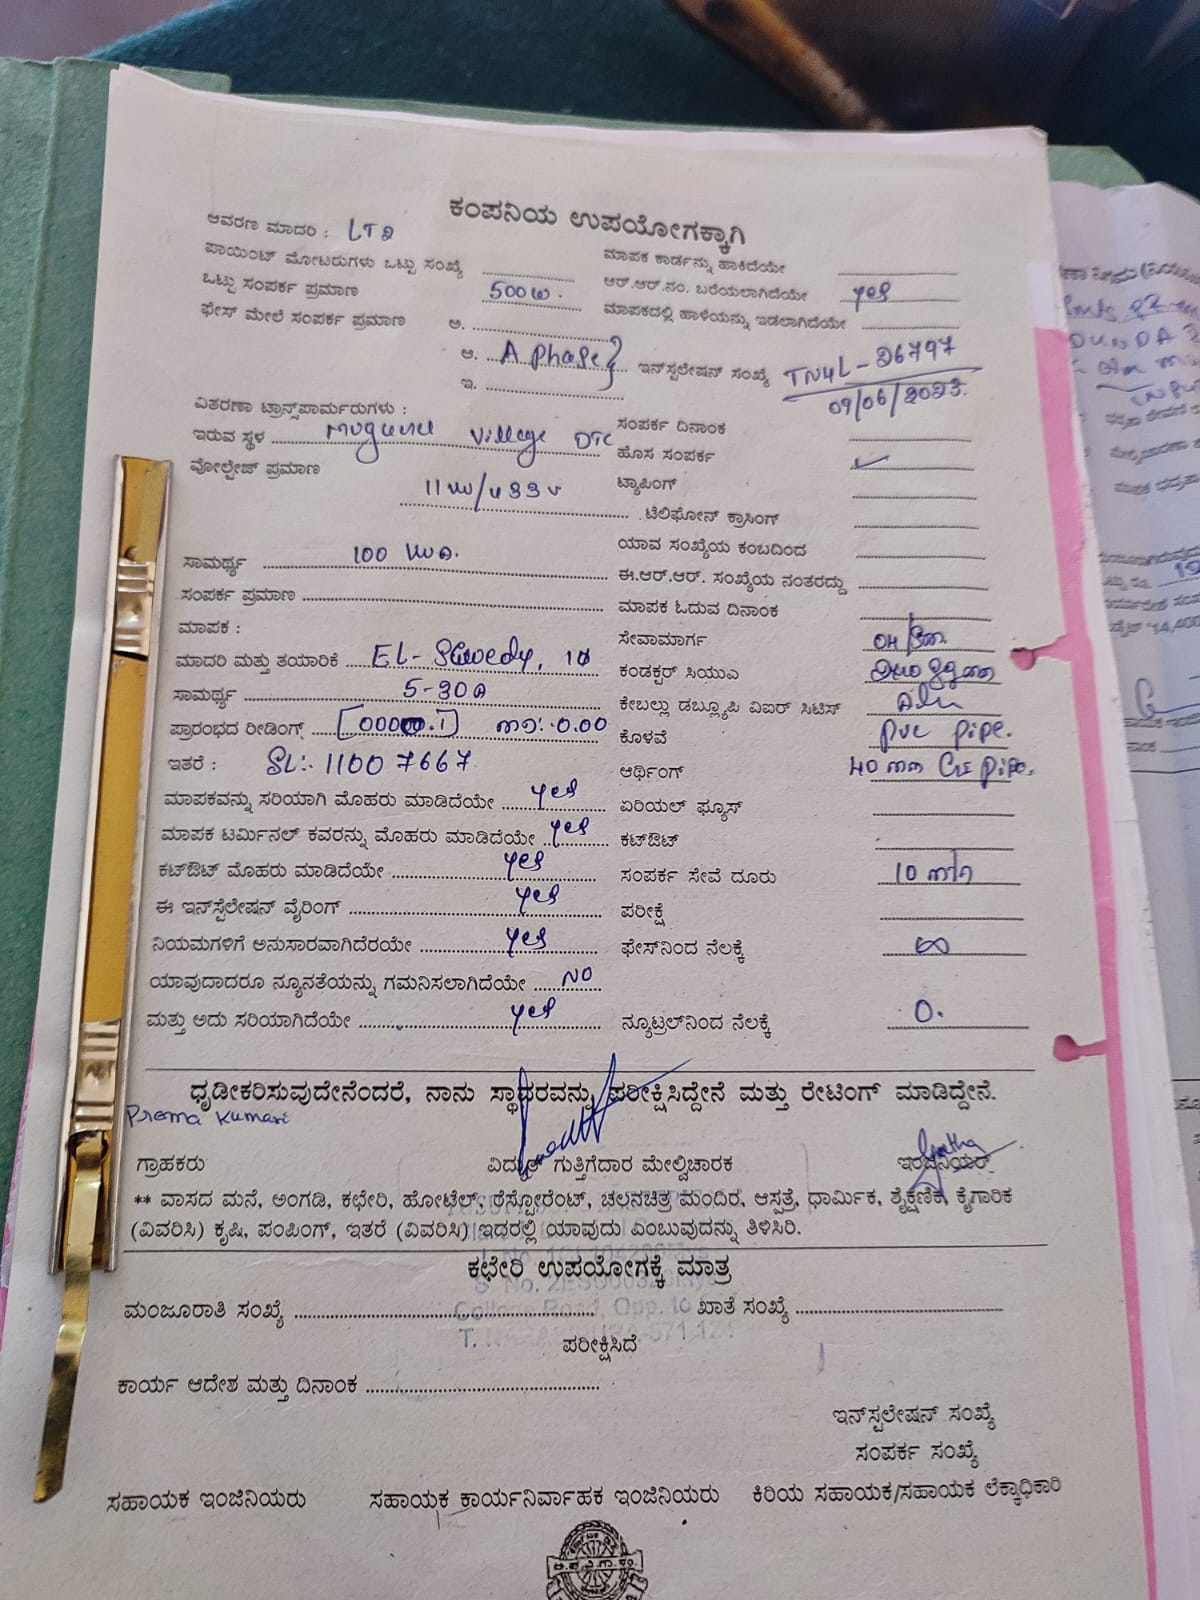 ಕಂಪನಿಯ ಉಪಯೋಗಕ್ಕಾಗಿ
ಆವರಣ ಮಾದರಿ : LT2
ಪಾಯಿಂಟ್ ಮೋಟರುಗಳು ಒಟ್ಟು ಸಂಖ್ಯೆ ಮಾಪಕ ಕಾರ್ಡನ್ನು ಹಾಕಿದೆಯೇ
ಒಟ್ಟು ಸಂಪರ್ಕ ಪ್ರಮಾಣ 500 W. ಆರ್.ಆರ್.ನಂ. ಬರೆಯಲಾಗಿದೆಯೇ yes
ಫೇಸ್ ಮೇಲೆ ಸಂಪರ್ಕ ಪ್ರಮಾಣ ಅ. ಮಾಪಕದಲ್ಲಿ ಹಾಳೆಯನ್ನು ಇಡಲಾಗಿದೆಯೇ
ಆ. A phase ಇನ್‌ಸ್ಟಲೇಷನ್ ಸಂಖ್ಯೆ TN4L-26797
ಇ. 09/06/2023.
ವಿತರಣಾ ಟ್ರಾನ್ಸ್‌ಪಾರ್ಮರುಗಳು : ಸಂಪರ್ಕ ದಿನಾಂಕ
ಇರುವ ಸ್ಥಳ Village DTC ಹೊಸ ಸಂಪರ್ಕ ✓
ವೋಲ್ಟೇಜ್ ಪ್ರಮಾಣ 11 ಟ್ಯಾಪಿಂಗ್
ಟೆಲಿಫೋನ್ ಕ್ರಾಸಿಂಗ್
ಸಾಮರ್ಥ್ಯ 100 ಯಾವ ಸಂಖ್ಯೆಯ ಕಂಬದಿಂದ
ಸಂಪರ್ಕ ಪ್ರಮಾಣ ಈ.ಆರ್.ಆರ್. ಸಂಖ್ಯೆಯ ನಂತರದ್ದು
ಮಾಪಕ : ಮಾಪಕ ಓದುವ ದಿನಾಂಕ
ಮಾದರಿ ಮತ್ತು ತಯಾರಿಕೆ EL-Swedy, 1ϕ ಸೇವಾಮಾರ್ಗ OH
ಸಾಮರ್ಥ್ಯ 5-30A ಕಂಡಕ್ಟರ್ ಸಿಯುಎ
ಪ್ರಾರಂಭದ ರೀಡಿಂಗ್ 0.00 ಕೇಬಲ್ಲು ಡಬ್ಲ್ಯೂಪಿ ವಿಐರ್ ಸಿಟಿಸ್
ಇತರೆ : SL:- 11007667 ಕೊಳವೆ pvc pipe.
ಮಾಪಕವನ್ನು ಸರಿಯಾಗಿ ಮೊಹರು ಮಾಡಿದೆಯೇ yes ಆರ್ಥಿಂಗ್ 40 mm GI pipe.
ಮಾಪಕ ಟರ್ಮಿನಲ್ ಕವರನ್ನು ಮೊಹರು ಮಾಡಿದೆಯೇ yes ಏರಿಯಲ್ ಫ್ಯೂಸ್
ಕಟ್‌ಔಟ್ ಮೊಹರು ಮಾಡಿದೆಯೇ yes ಕಟ್‌ಔಟ್
ಈ ಇನ್‌ಸ್ಟೆಲೇಷನ್ ವೈರಿಂಗ್ yes ಸಂಪರ್ಕ ಸೇವೆ ದೂರು 10
ನಿಯಮಗಳಿಗೆ ಅನುಸಾರವಾಗಿದೆರಯೇ yes ಪರೀಕ್ಷೆ
ಯಾವುದಾದರೂ ನ್ಯೂನತೆಯನ್ನು ಗಮನಿಸಲಾಗಿದೆಯೇ NO ಫೇಸ್‌ನಿಂದ ನೆಲಕ್ಕೆ ∞
ಮತ್ತು ಅದು ಸರಿಯಾಗಿದೆಯೇ yes ನ್ಯೂಟ್ರಲ್‌ನಿಂದ ನೆಲಕ್ಕೆ 0.
ಧೃಡೀಕರಿಸುವುದೇನೆಂದರೆ, ನಾನು ಸ್ಥಾಥರವನ್ನು ಪರೀಕ್ಷಿಸಿದ್ದೇನೆ ಮತ್ತು ರೇಟಿಂಗ್ ಮಾಡಿದ್ದೇನೆ.
Prema Kumari
ಗ್ರಾಹಕರು ವಿದ್ಯುತ್ ಗುತ್ತಿಗೆದಾರ ಮೇಲ್ವಿಚಾರಕ ಇಂಜಿನಿಯರ್
** ವಾಸದ ಮನೆ, ಅಂಗಡಿ, ಕಛೇರಿ, ಹೋಟೆಲ್, ರೆಸ್ಟೋರೆಂಟ್, ಚಲನಚಿತ್ರ ಮಂದಿರ, ಆಸ್ಪತ್ರೆ, ಧಾರ್ಮಿಕ, ಶೈಕ್ಷಣಿಕ, ಕೈಗಾರಿಕ
(ವಿವರಿಸಿ) ಕೃಷಿ, ಪಂಪಿಂಗ್, ಇತರೆ (ವಿವರಿಸಿ) ಇದರಲ್ಲಿ ಯಾವುದು ಎಂಬುವುದನ್ನು ತಿಳಿಸಿರಿ.
ಕಛೇರಿ ಉಪಯೋಗಕ್ಕೆ ಮಾತ್ರ
ಮಂಜೂರಾತಿ ಸಂಖ್ಯೆ ಖಾತೆ ಸಂಖ್ಯೆ
College Road, Opp. to
ಪರೀಕ್ಷಿಸಿದೆ
ಕಾರ್ಯ ಆದೇಶ ಮತ್ತು ದಿನಾಂಕ
ಇನ್‌ಸ್ಟಲೇಷನ್ ಸಂಖ್ಯೆ
ಸಂಪರ್ಕ ಸಂಖ್ಯೆ
ಸಹಾಯಕ ಇಂಜಿನಿಯರು ಸಹಾಯಕ ಕಾರ್ಯನಿರ್ವಾಹಕ ಇಂಜಿನಿಯರು ಕಿರಿಯ ಸಹಾಯಕ/ಸಹಾಯಕ ಲೆಕ್ಕಾಧಿಕಾರಿ